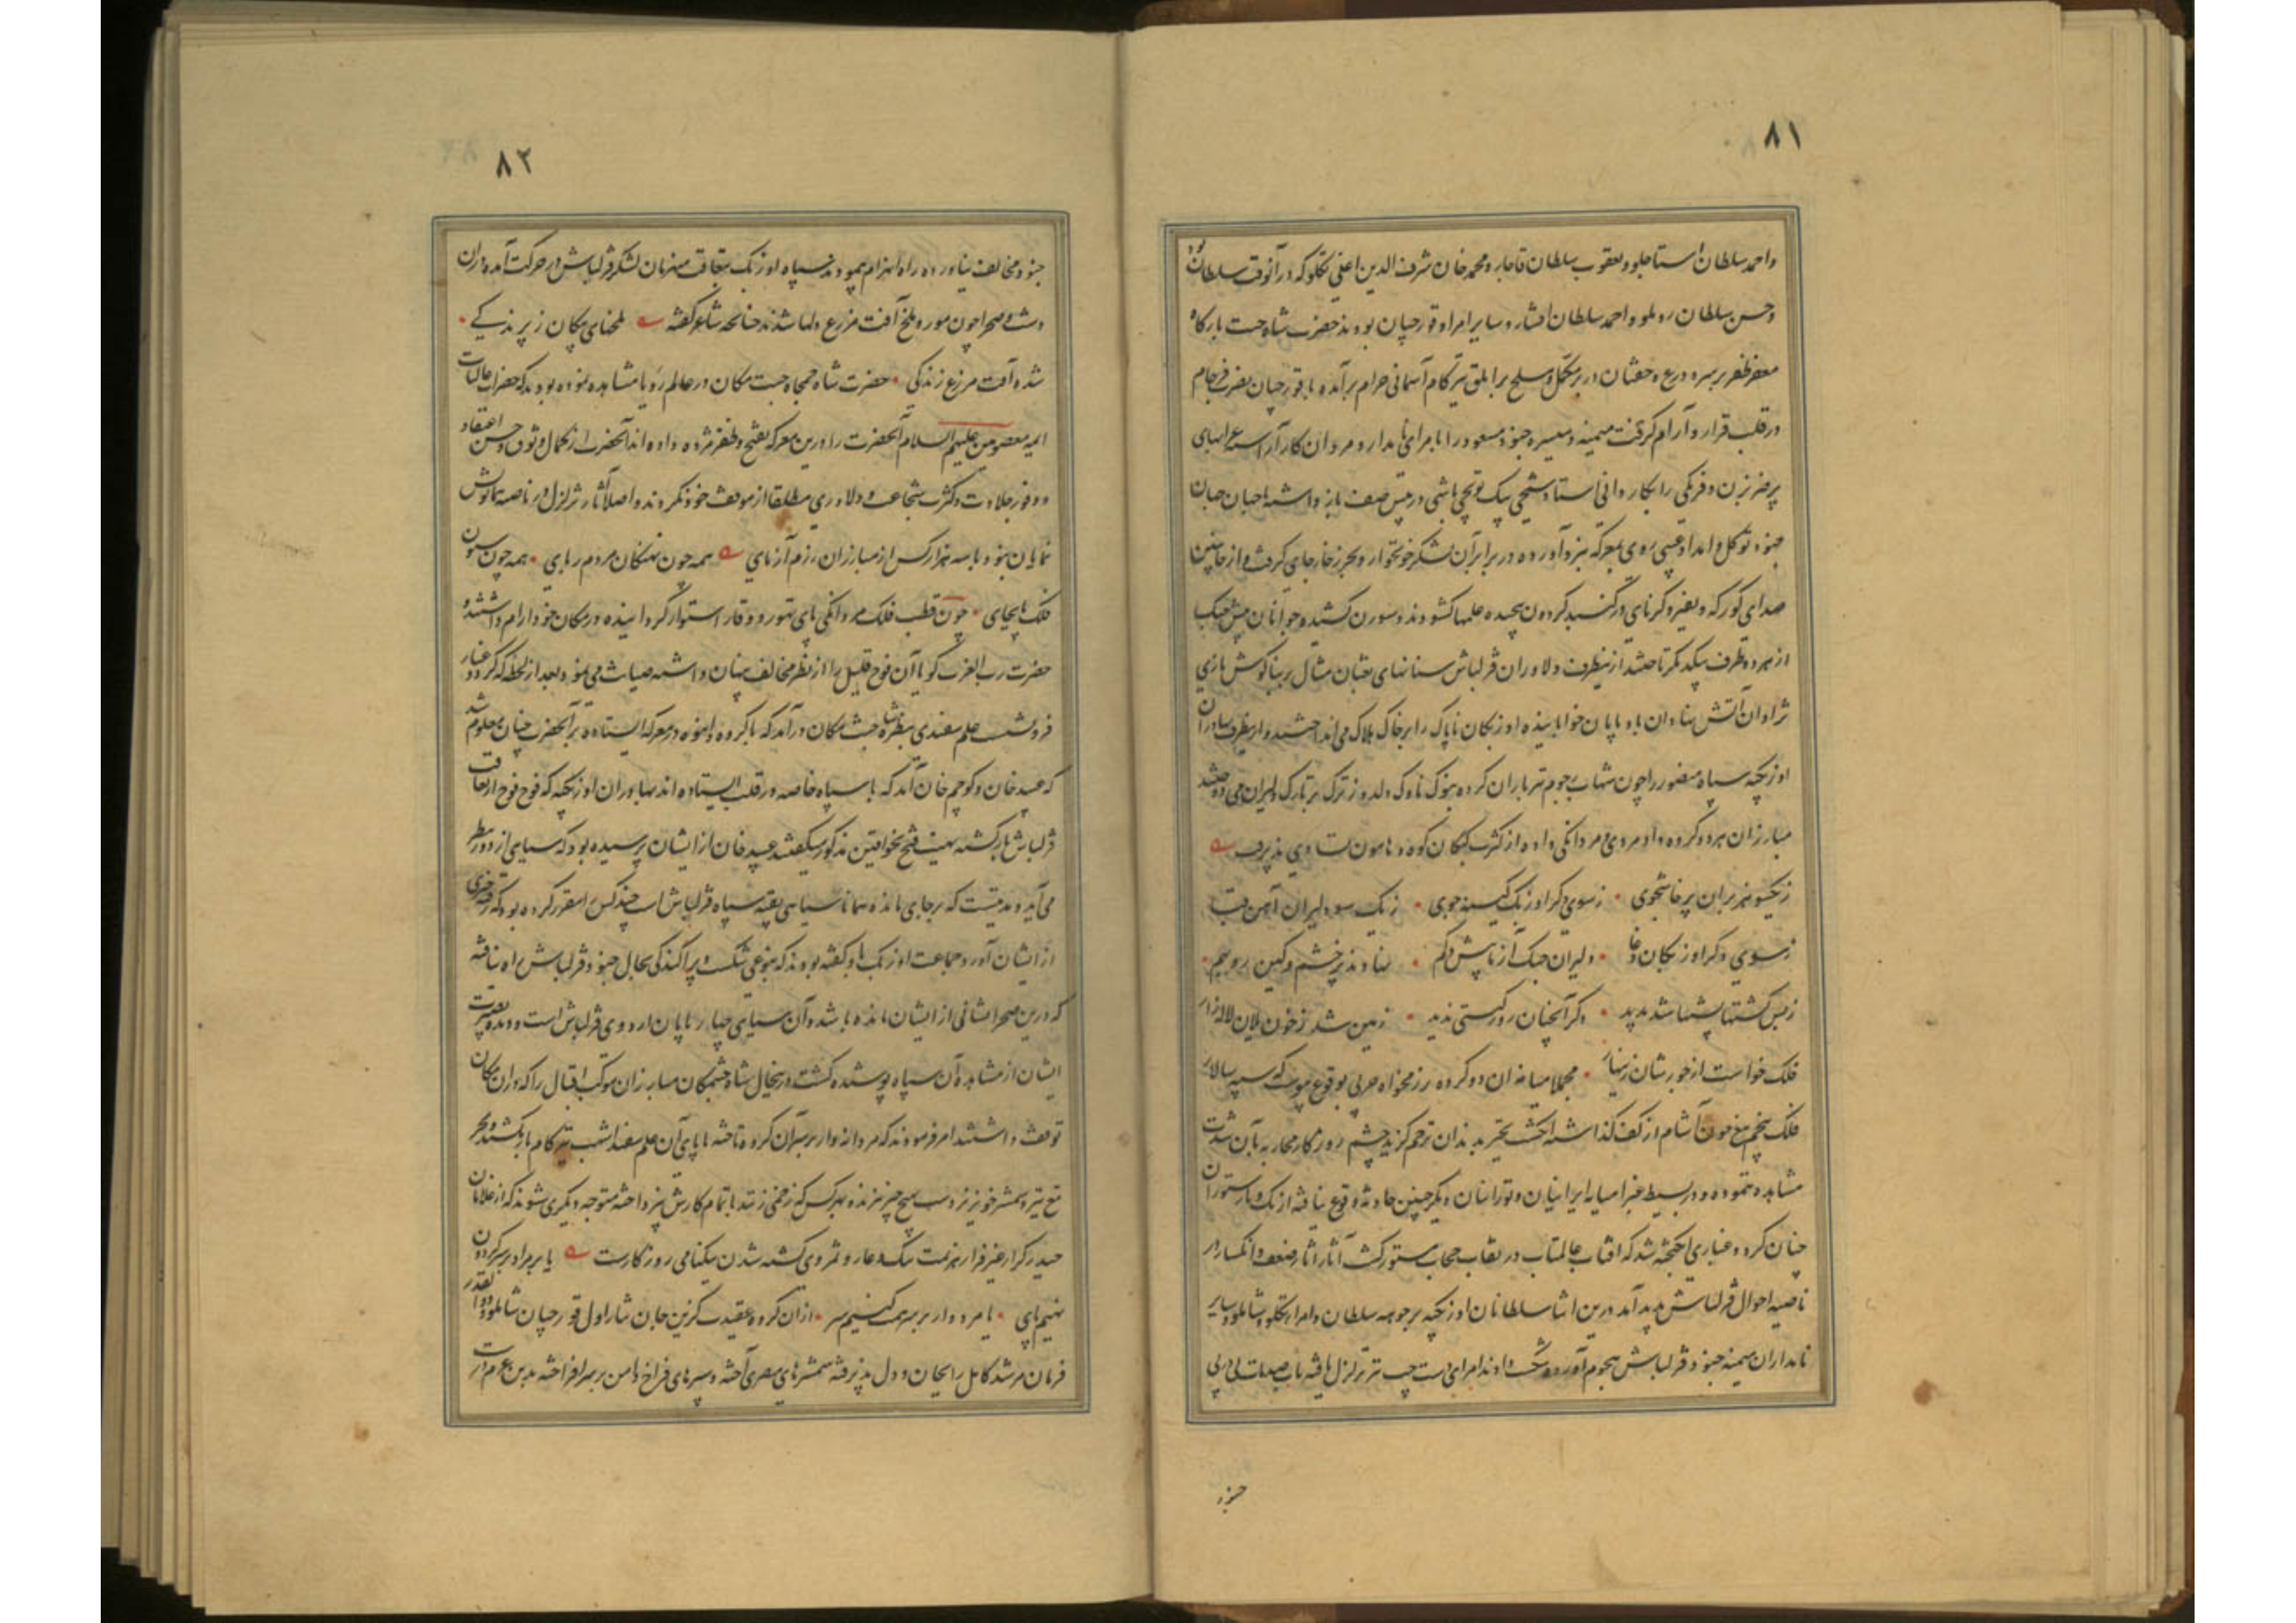 ۸۱
واحمد سلطان استاجلو ویعقوب سلطان قاجار ومحمدخان شرف الدین اغلی تکلو که درآنوقت سلطان بود
وحسن سلطان روملو واحمد سلطان افشار وسایر امرا وقورچیان بودند حضرت شاه جنت بارگاه
مغفر ظفر برسر و درع خفتان دربر مکمل و مسلح برابلق تیزکام آسمانی خرام برآمده باقورچیان نصرت فرجام
درقلب قرار و آرام گرفت میمنه ومیسره جنود مسعود را بامرای نامدار ومردان کار آراسته عرابهای
پرضرب زن وفرنگی را بکاردانی استاد شیخی بیک توپچی باشی درپیش صف بازداشته
جنود توکل وامداد غیبی روی بمعرکه نبرد آورده دربرابر آن لشکر خونخوار وبحر زخار جای گرفت واز جانبین
صدای کورکه ونفیر وکرنای درگنبد گردون پیچیده علمها گشودند وسورن کشیده وجوانان پیش جنگ
ازهر دو طرف بیکدیگر تاختند ازینطرف دلاوران قزلباش سنانهای ثعبان مثال بربناگوش تازی
نژادان آتش نهادان باد پایان خوابانیده اوزبکان ناپاک را برخاک هلاک می انداختند وازطرف بهادران
اوزبکیه سپاه منصور را چون شهاب رجوم تیرباران کرده بنوک ناوک دلدوز ترک برتارک دلیران می دوختند
مبارزان هر دو گروه داد مردی ومردانگی داده از کثرت کشتگان کوه وهامون تساوی پذیرفت
زیکسو هزبران پرخاشجوی • زسوی دگر اوزبک کینه جوی • زیک سو دلیران آهن قبا
زسوی دگر اوزبکان دغا • دلیران جنگ آزما پیش وکم • نهادند پرخشم وکین رو بهم •
زبس کشتها پشتها شد پدید • دگر آنچنان روز گیتی ندید • زمین شد زخون یلان لاله زار
فلک خواست ازخورشان زینهار • مجملا میانه آن دو گروه رزمخواه حربی بوقوع پیوست که سپهسالار
فلک پنجم تیغ خون آشام از کف گذاشته انگشت تحیر بدندان ترحم گزید چشم روزگار محاربه بآن شدت
مشاهده ننموده ودر بسیط غبرا میانه ایرانیان وتورانیان دیگر چنین حادثه وقوع نیافته از تک وتاز ستوران
چنان گرد وغباری انگیخته شد که آفتاب عالمتاب درنقاب حجاب مستور گشت آثار ضعف وانکسار در
ناصیه احوال قزلباش پدید آمد درین اثنا سلطانان اوزبکیه برجوهه سلطان وامراء تکلو وشاملو وسایر
نامداران میمنه جنود قزلباش هجوم آورده شکست دادند امرای دست چپ نیز تزلزل یافته تاب صدمات پی درپی
جنود
۸۲
جنود مخالف نیاورده راه انهزام پیمودند سپاه اوزبک بتعاقب منهزمان لشکر قزلباش درحرکت آمده دران
دشت وصحرا چون مور وملخ آفت مزرع دلها شدند چنانچه شاعر گفته ملخهای پیکان زپرندگی •
شده آفت مزرع زندگی • حضرت شاه جمجاه جنت مکان درعالم رؤیا مشاهده نموده بودند که حضرات عالیات
ائمه معصومین علیهم السلام آنحضرت را درین معرکه بفتح وظفر مژده داده اند آنحضرت از کمال وثوق وحسن اعتقاد
ووفور جلادت وکثرت شجاعت ودلاوری مطلقا ازموقف خود نکردند واصلا آثار تزلزل درناصیه همایونش
نمایان نبود وباسه هزار کس از مبارزان رزم آزمای همه چون نهنگان مردم ربای • همه چون ستون
فلک پابجای • چون قطب فلک مردانگی پای تهور ووقار استوار گردانیده درمکان خود آرام داشتند و
حضرت رب العزت گویا آن فوج قلیل را ازنظر مخالف پنهان داشته صیانت می نمود وبعد ازلحظه که گرد وغبار
فرونشست علم سفیدی بنظر شاه جنت مکان درآمد که باگروه انبوه درمعرکه ایستاده برآنحضرت چنان معلوم شد
که عبید خان وکوچم خان اند که باسپاه خاصه درقلب ایستاده اند بهادران اوزبکیه که فوج فوج ازتعاقب
قزلباش بازگشته تهنیت فتح بخواقین مذکور میگفتند عبید خان ازایشان پرسیده بود که سیاهی از دور بنظر
می آید ومدتیست که برجای مانده همانا سیاهی بقیه سپاه قزلباش است چند کس را مقرر کرده بود که رفته خبری
ازایشان آورد جماعت اوزبک باو گفته بودند که بنوعی شکست وپراکندگی بحال جنود قزلباش راه نیافته
که درین صحرا نشانی ازایشان مانده باشد وآن سیاهی چهارپایان اردوی قزلباش است ودیده بصیرت
ایشان ازمشاهده آن سپاه پوشیده گشت درینحال شاه مبارزان موکب اقبال را که دران مکان
توقف داشتند امر فرمودند که مردانه وار برسر آن گروه تاخته تا پای آن علم سفید اشهب تیزکام باز نکشند وبجز
تیغ تیز وشمشیر خونریز دست بهیچ چیز نبرند وبهر کس که زخمی زنند باتمام کارش نپرداخته متوجه دیگری شوند که ازغلامان
حیدر کرار غیر فرار هزیمت ننگ وعار و کشته شدن نیکنامی روزگارست یا بر مراد برسر گردون
نهیم پای • یا مرد وار برسر همت کنیم سر • ازان گروه عقیدت گزین جان نثار اول قورچیان شاملو وذوالقدر
فرمان مرشد کامل را بجان ودل پذیرفته شمشیرهای مصری آخته وسپرهای فراخ دامن برسر افراخته بدین عزم درست